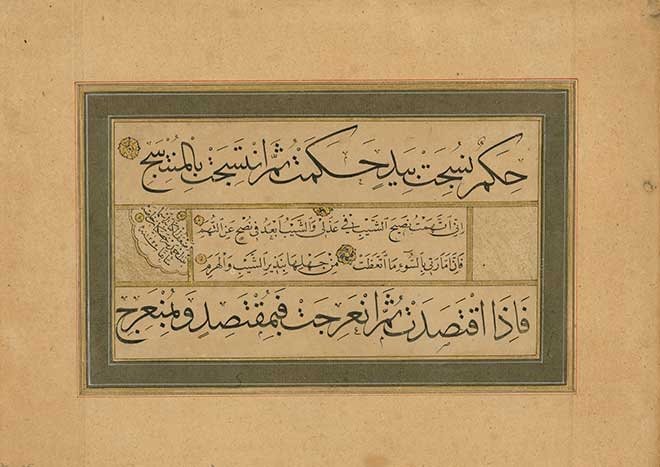 حِكَمٌ نُسِجَتْ بِيَدٍ حَكَمَتْ ثُمَّ انْتَسَجَتْ بِالْمُنْتَسِجِ
اِنِّى اتَّهَمْتُ نَصِيحَ الشَّيْبِ فِى عَذَلِى وَالشَّيْبُ اَبْعَدُ فِى نُصْحٍ عَنِ التُّهَمِ
فَاِنَّ اَمَّارَتِى بِالسُّوءِ مَا اتَّعَظَتْ مِنْ جَهْلِهَا بِنَذِيرِ الشَّيْبِ وَالْهَرَمِ
فَاِذَا اقْتَصَدَتْ ثُمَّ انْعَرَجَتْ فَبِمُقْتَصِدٍ وَبِمُنْعَرِجِ